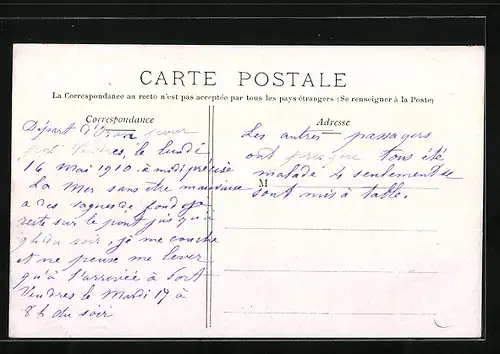 CARTE POSTALE
La Correspondance au recto n'est pas acceptée par tous les pays étrangers (Se renseigner à la Poste)
Correspondance
Départ d'Oran pour
port Vendres, le lundi
16 Mai 1910. à midi précise
La Mer sans être mauvaise
a des vagues de fond je
reste sur le pont jusqu'à
du soir, je me couche
et ne peux me lever
qu'à l'arrivée à Port
Vendres le Mardi 17 à
8h du soir
Adresse
Les autres passagers
ont presque tous été
malade 4 seulement se
M
sont mis à table.